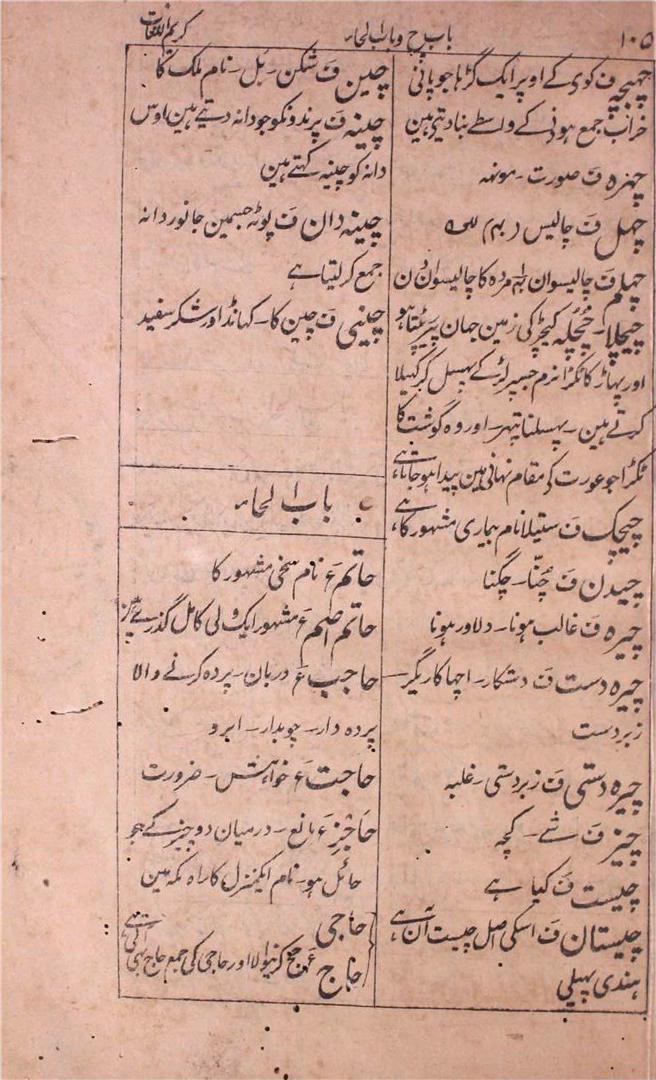 ۱۰۵
باب چ و باب الحاء
کریم اللغات
چہبچہ ف کوی کے اوپر ایک گڑہا جو پانی
خراب جمع ہونے کے واسطے بنا دیتی ہین
چہرہ ف صورت۔ مونہہ
چہل ف چالیس
چہلم ف چالیسوان مردہ کا چالیسوان دن
چیچلا۔ کیچڑ کی زمین جہان پیر
اور پہاڑ کا ٹکڑا نرم جسپر لڑکے پہسل کر کہیلا
کرتے ہین۔ پہسلنا پتہر۔ اور وہ گوشت کا
ٹکڑا جو عورت کی مقام نہانی مین پیدا ہو جاتا ہے
چیچک ف ستیلا نام بیماری مشہور کا ہے
چیدن ف چننا۔ چگنا
چیرہ ف غالب ہونا۔ دلاور ہونا
چیرہ دست ف دستکار۔ اچہا کاریگر۔
زبردست
چیرہ دستی ف زبردستی۔ غلبہ
چیز ف شے۔ کچہ
چیست ف کیا ہے
چیستان ف اسکی اصل چیست آن ہے
ہندی پہیلی
چین ف شکن۔ بل۔ نام ملک کا
چینہ ف پرندونکو جو دانہ دیتے ہین اوس
دانہ کو چینہ کہتے ہین
چینہ دان ف پوٹہ جسمین جانور دانہ
جمع کر لیتا ہے
چینی ف چین کا۔ کہانڈ اور شکر سفید
باب الحاء
حاتم ع نام سخی مشہور کا
حاتم اصم ع مشہور ایک ولی کامل گذرے ہین
حاجب ع دربان۔ پردہ کرنے والا
پردہ دار۔ چوبدار۔ ابرو
حاجت ع خواہش۔ ضرورت
حاجز ع مانع۔ درمیان دو چیز کے جو
حائل ہو۔ نام ایک منزل کا راہ مکہ مین
حاجی
حاج ع حج کرنیوالا اور حاجی کی جمع حاج بہی آتی ہے